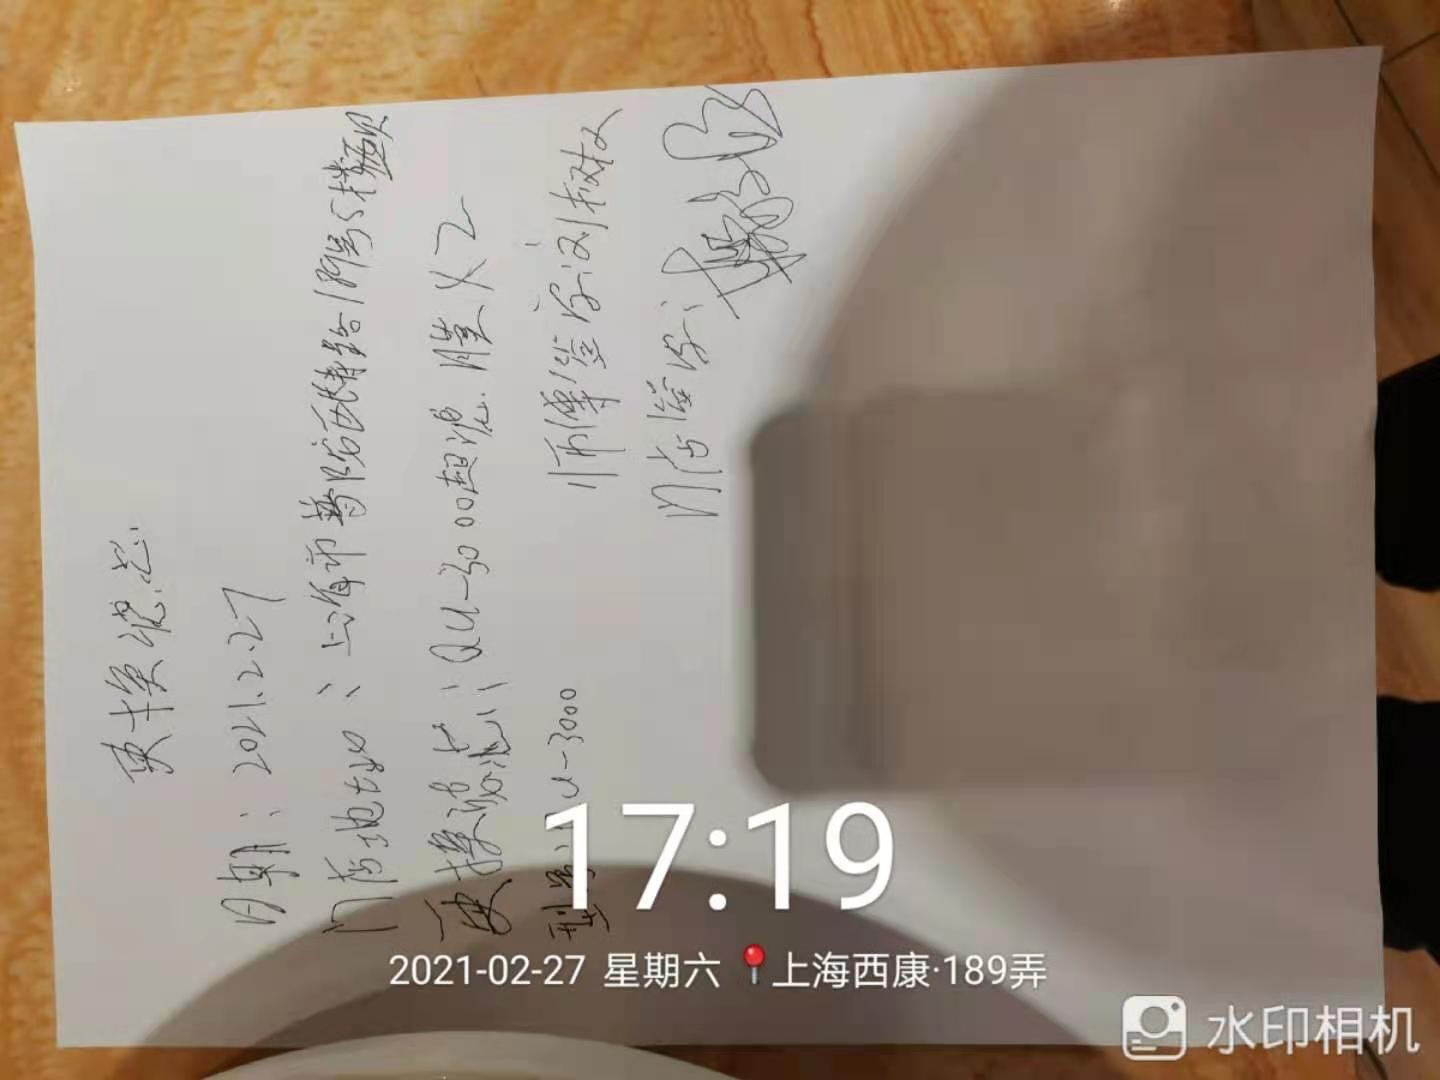 更换滤芯
日期：2021.2.27
门店地址：上海市普陀区西康路189号
更换滤芯：QU-3000超滤膜×2
型号：QU-3000
师傅签字：刘
门店签字：
17:19
2021-02-27 星期六 上海西康·189弄
水印相机